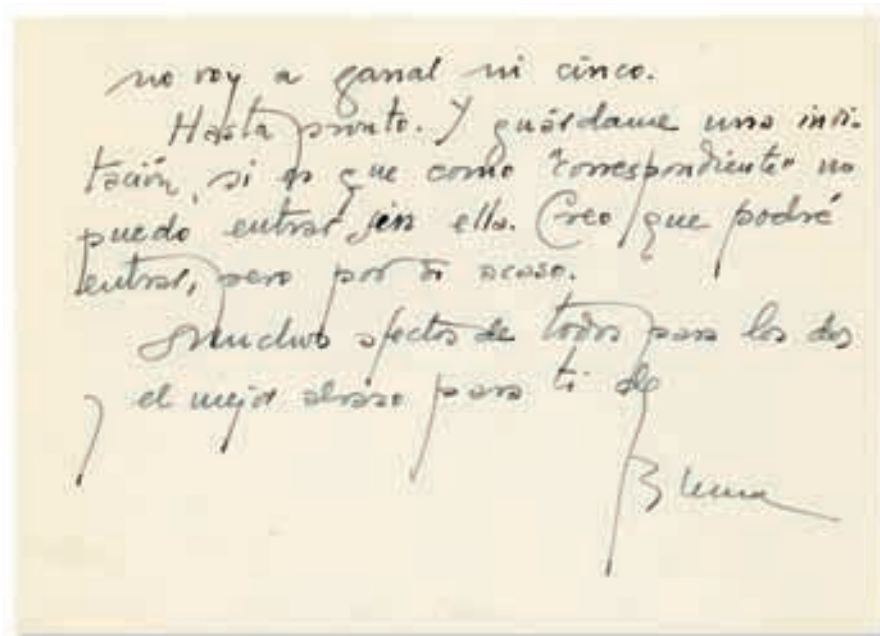 no voy a ganar ni cinco.
Hasta pronto. Y guárdame una invi-
tación, si es que como "correspondiente" no
puedo entrar sin ella. Creo que podré
entrar, pero por si acaso.
Muchos afectos de todos para los dos
y el mejor abrazo para ti de